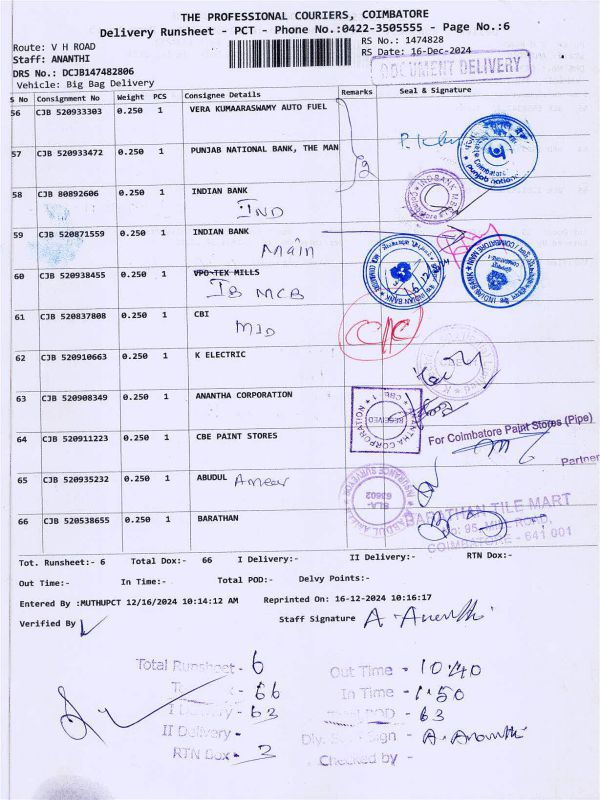 THE PROFESSIONAL COURIERS, COIMBATORE
Delivery Runsheet - PCT - Phone No.:0422-3505555 - Page No.:6
Route: V H ROAD
RS No.: 1474828
Staff: ANANTHI
RS Date: 16-Dec-2024
DRS No.: DCJB147482806
DOCUMENT DELIVERY
Vehicle: Big Bag Delivery
S No Consignment No Weight PCS Consignee Details Remarks Seal & Signature
56 CJB 520933303 0.250 1 VERA KUMAARASWAMY AUTO FUEL
57 CJB 520933472 0.250 1 PUNJAB NATIONAL BANK, THE MAN
58 CJB 80892606 0.250 1 INDIAN BANK
IND
59 CJB 520871559 0.250 1 INDIAN BANK
Main
60 CJB 520938455 0.250 1 VPO TEX MILLS
IB MCB
61 CJB 520837808 0.250 1 CBI
62 CJB 520910663 0.250 1 K ELECTRIC
63 CJB 520908349 0.250 1 ANANTHA CORPORATION
RECEIVED
64 CJB 520911223 0.250 1 CBE PAINT STORES
For Coimbatore Paint Stores (Pipe)
Partner
65 CJB 520935232 0.250 1 ABUDUL Ameer
SLA-
63602
66 CJB 520538655 0.250 1 BARATHAN
BARATHAN TILE MART
COIMBATORE - 641 001
Tot. Runsheet:- 6 Total Dox:- 66 I Delivery:- II Delivery:- RTN Dox:-
Out Time:- In Time:- Total POD:- Delvy Points:-
Entered By :MUTHUPCT 12/16/2024 10:14:12 AM Reprinted On: 16-12-2024 10:16:17
Verified By
Staff Signature A. Ananthi
Total Runsheet - 6
Out Time - 10.40
66
In Time - 1.50
I Delivery - 63
Total POD - 63
II Delivery -
Sign - A. Ananthi
RTN Dox - 3
Checked by -